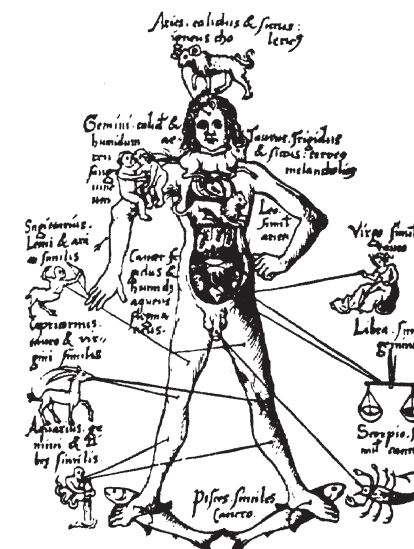 Aries. calidus & siccus:
igneus cho lericꝰ
Gemini. calid' &
humidum ae-
reu
sang
uine
um
Taurus. frigidus
& siccus: terreꝰ
melancholicꝰ
Leo.
simil'
arieti
Sagittarius.
Leoni & ari
similis
Cancer f
gidus &
humidꝰ
aqueus
Virgo simil'
Capricornus.
tauro & vir-
gini similis
Libra. sim
gemini
Aquarius. ge
mini & li
bre similis
Scorpio. si
Pisces. similes
Cancro.